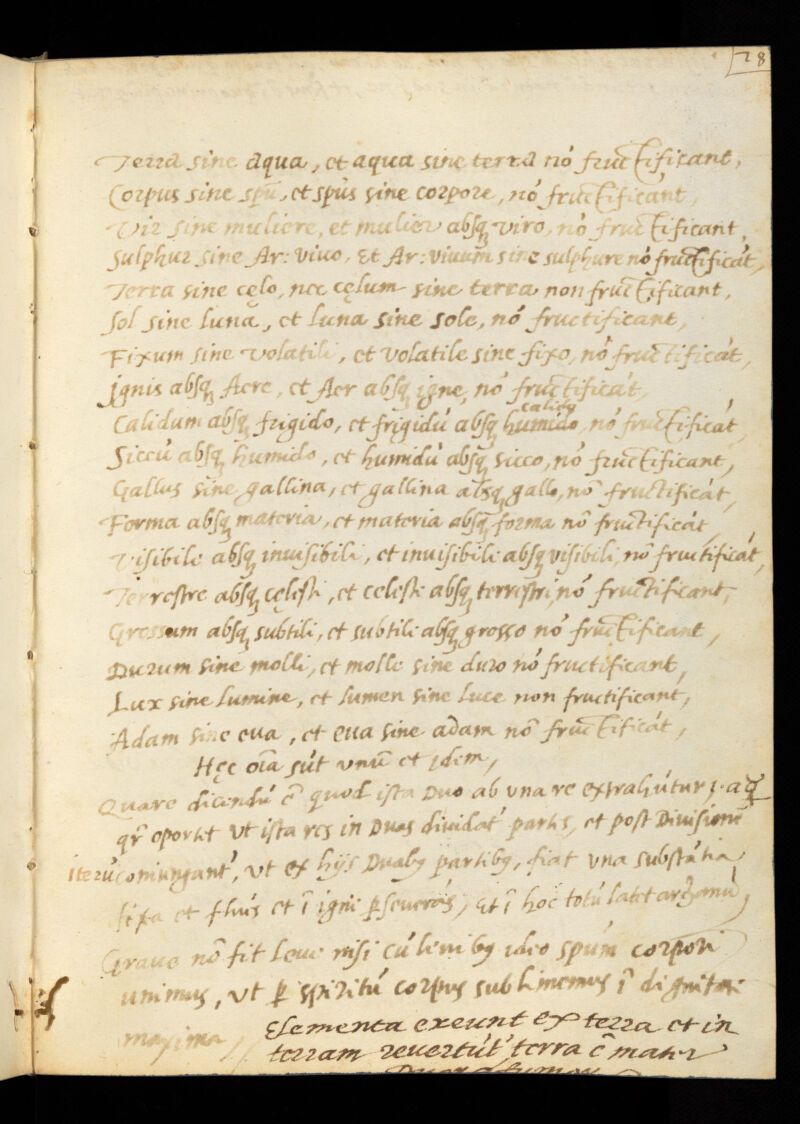 28
Terra sine aqua, et aqua sine terra nō fructificant,
Corpus sine spũ, et spũs sine corpore, nō fructificant,
Vir sine muliere, et mulier absq, viro, nō fructificant,
Sulphur sine Ar: vivo, Et Ar: vivum sine sulphure nō fructificāt,
Terra sine cęlo, nec cęlum sine terra non fructificant,
Sol sine luna, et luna sine sole, nō fructificant,
Fixum sine volatili, et volatile sine fixo, nō fructificāt,
Ignis absq, Aere, et Aer absq, igne, nō fructificāt,
calido
Calidum absq, frigido, et frigidū absq, humido, nō fructificāt,
Siccū absq, humido, et humidū absq, sicco, nō fructificant,
Gallus sine gallina, et gallina absq, gallo, nō fructificāt,
Forma absq, materia, et materia absq, forma nō fructificāt,
Visibile absq, invisibili, et invisibile absq, visibili, nō fructificāt,
Terrestre absq, cęlesti, et celeste absq, terrestri, nō fructificant,
Grossum absq, subtili, et subtile absq, grosso nō fructificant,
Durum sine molli, et molle sine duro nō fructificant,
Lux sine lumine, et lumen sine luce non fructificant,
Adam sine eva, et eva sine adam nō fructificāt,
Hęc oĩa sūt unū et idem,
Quare dicendū ē quod ista duo ab una re extrahūtur,
qr̃ oportet ut ista res in duas dividat' partes, et post Divisionē
iterū coniungant', ut ex hijs Duabq partibq, fiat una substātia
fixa et et ī igni, Et ī hoc totū latet
Grave nō fit leve nisi cū levibq ideo spũm corpori
unimus, ut p spiritū corpus sublimemus ī dignitate
maxima
Elementa exeunt ex terra et in
terram revertūt' terra ē mater